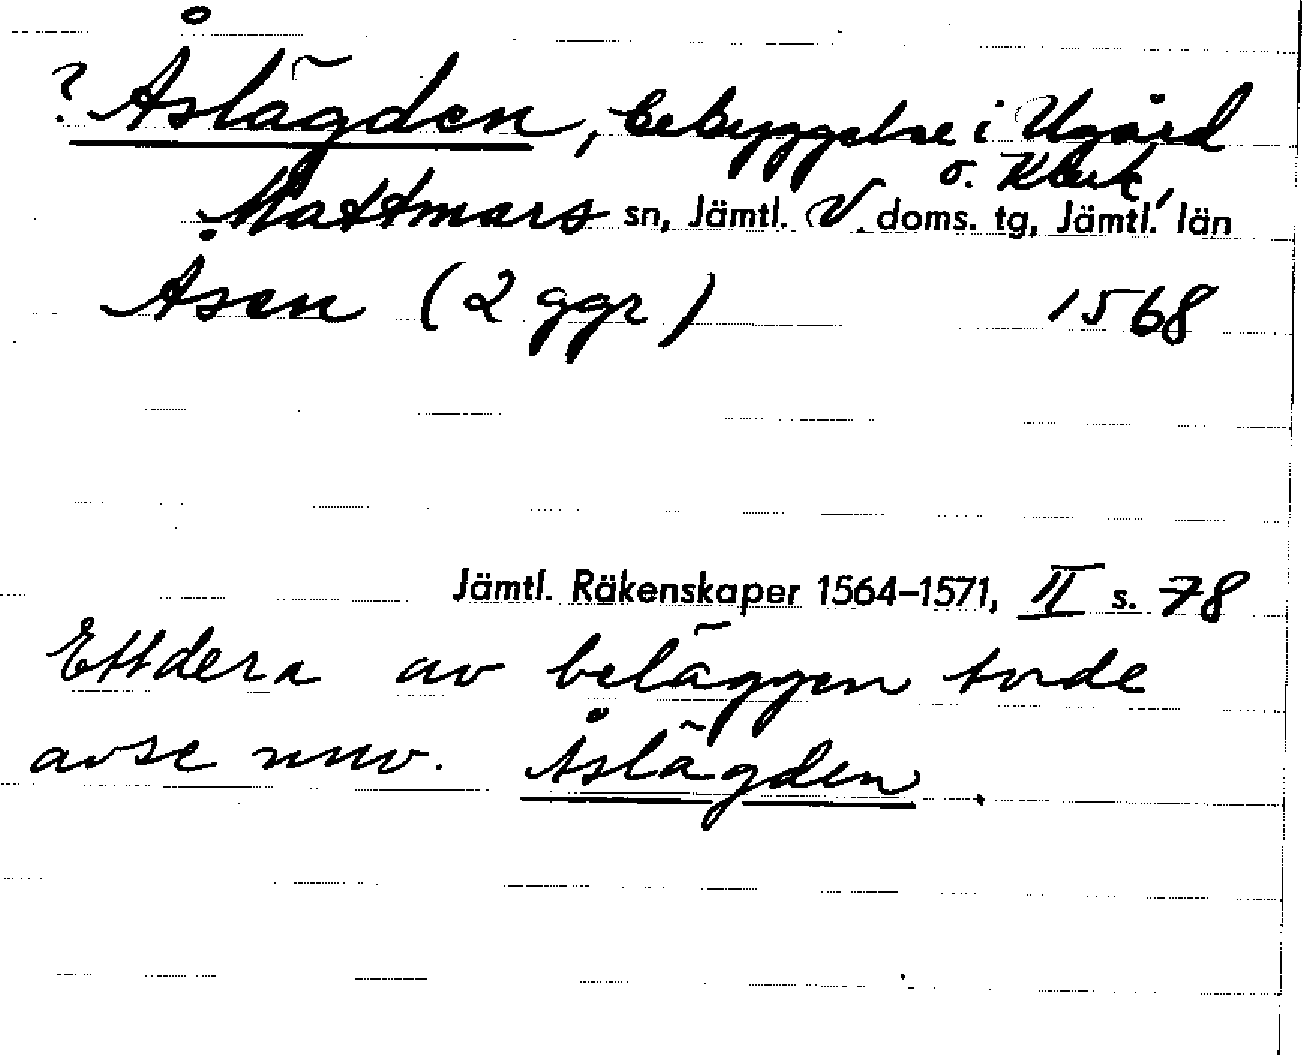 ? Åslägden, bebyggelse i Ugård
o. Kluk,
Mattmars sn, Jämtl. V. doms. tg, Jämtl. län
Åsen (2 ggr) 1568
Jämtl. Räkenskaper 1564–1571, II s. 78
Ettdera av beläggen torde
avse nuv. Åslägden.